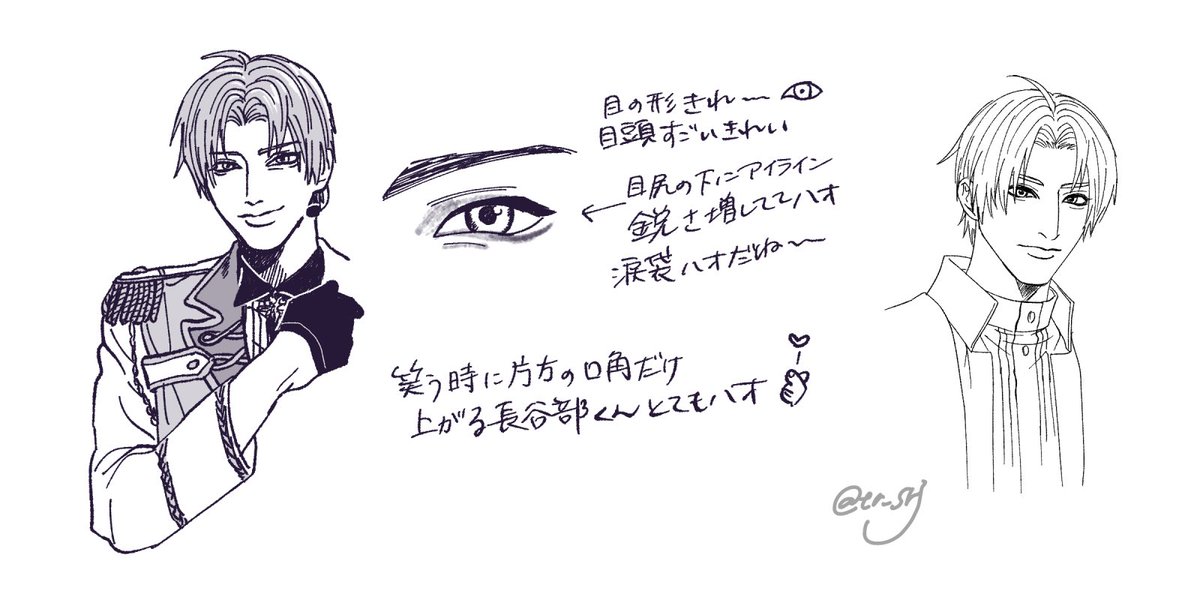 目の形きれ〜
目頭すごいきれい
目尻の下にアイライン
鋭さ増しててハオ
涙袋ハオだね〜
笑う時に片方の口角だけ
上がる長谷部くんとてもハオ